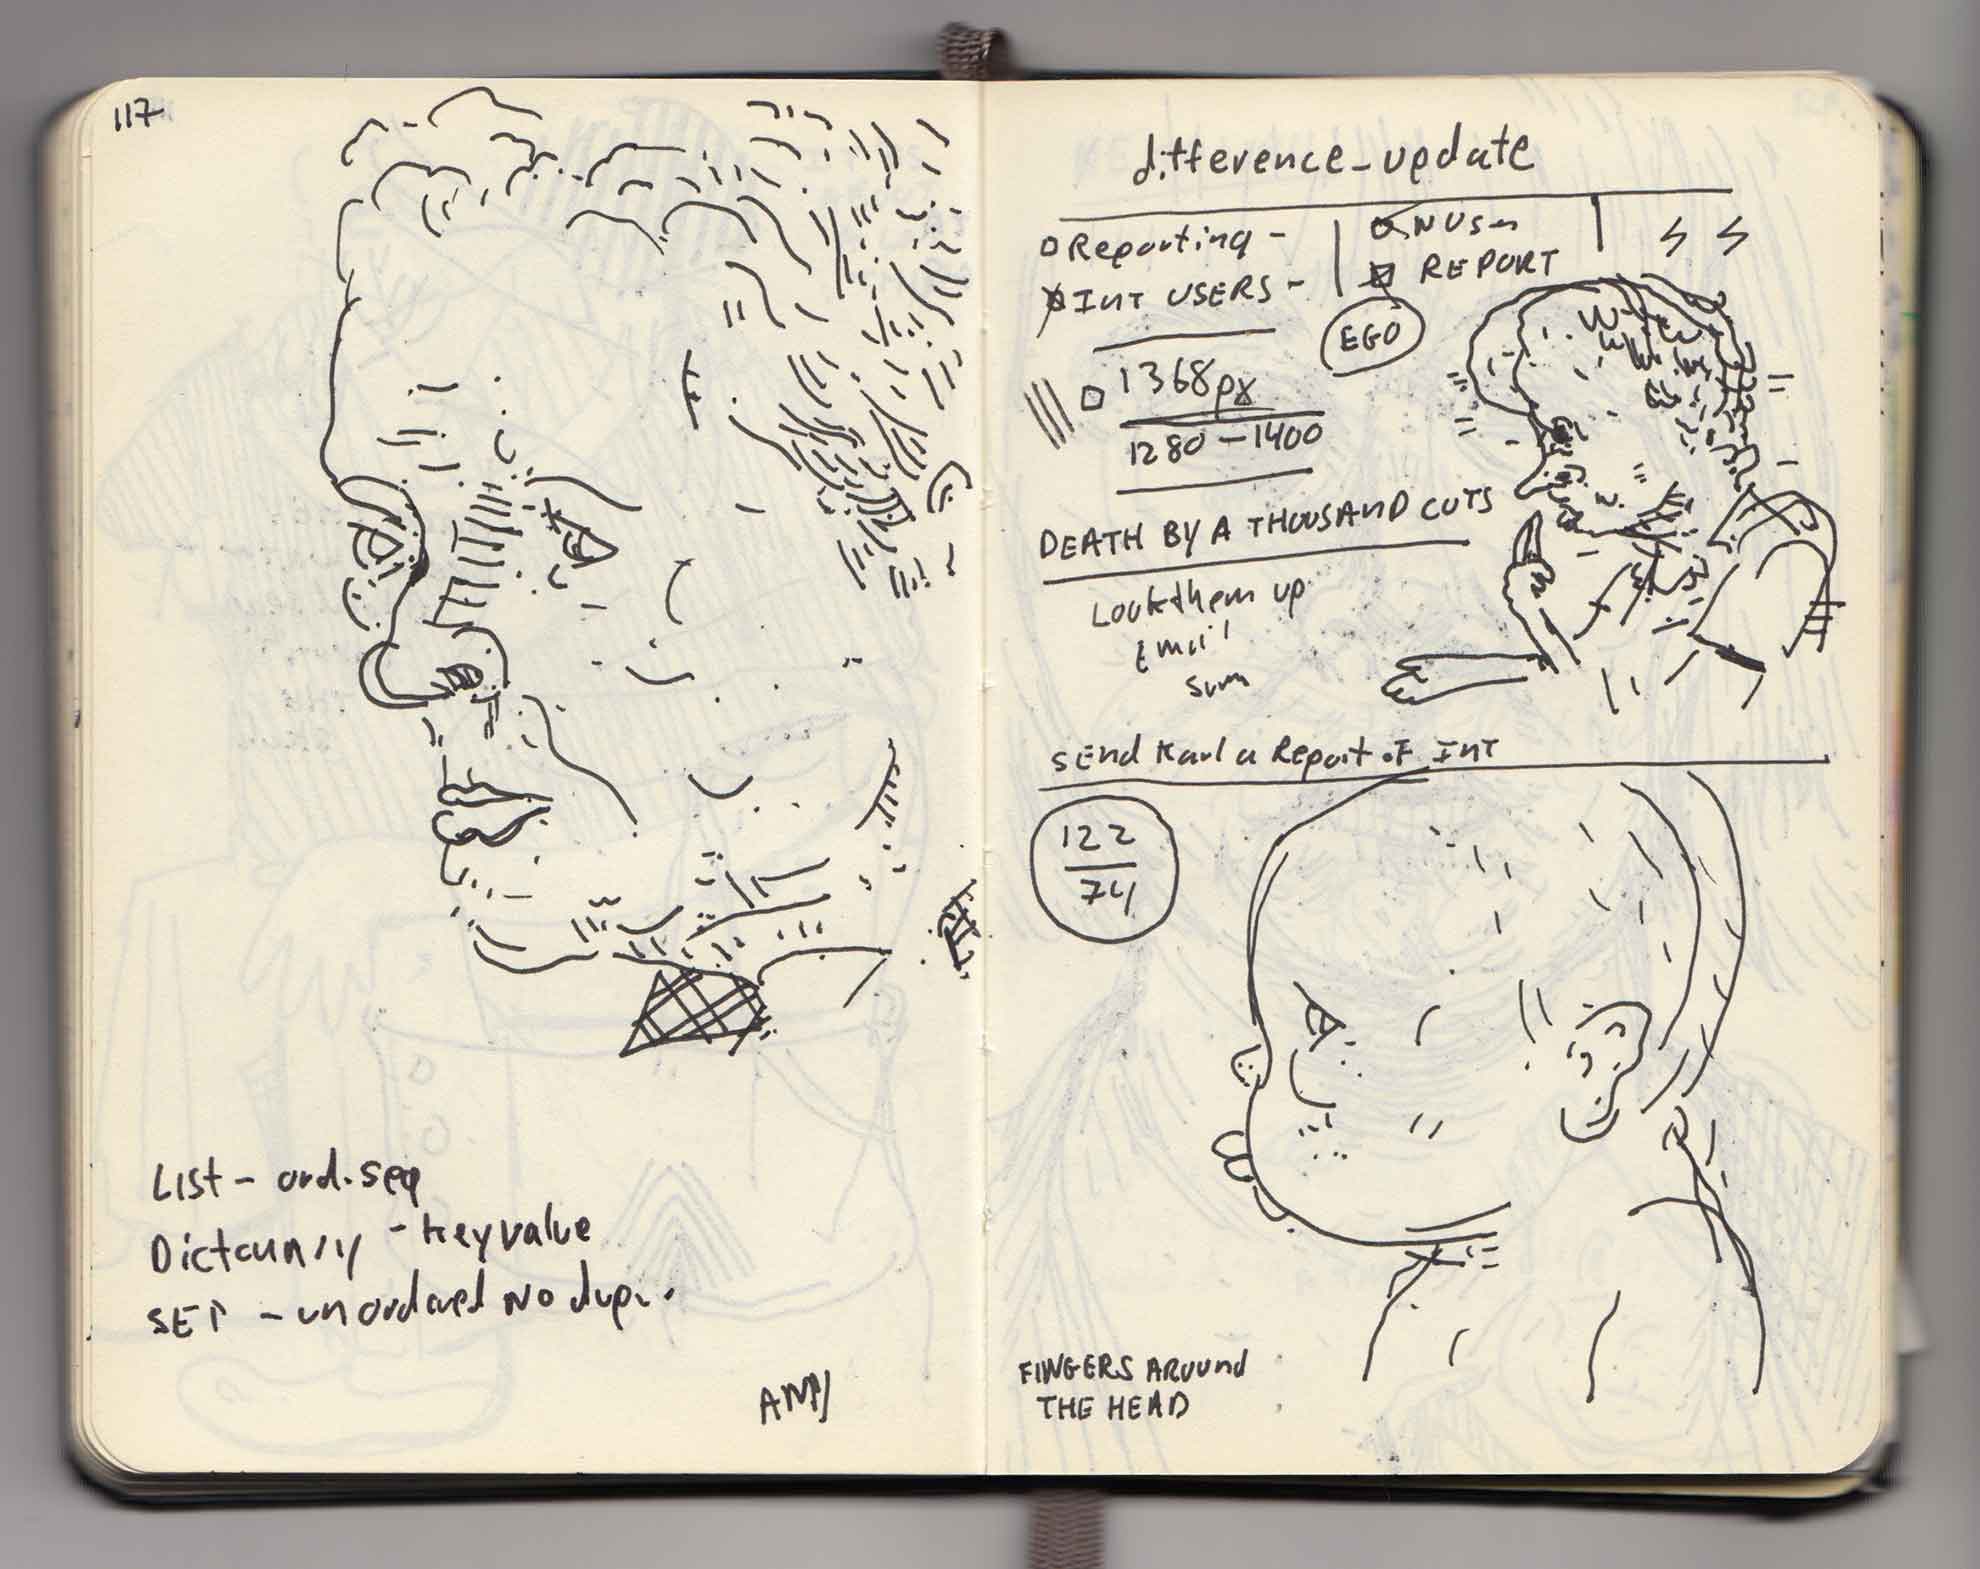 117
LIST - ord. seq
Dictounary - Key value
SET - unordored No dup.
difference_update
Reporting -
INT USERS -
REPORT
EGO
1368px
1280 - 1400
DEATH BY A THOUSAND CUTS
Look them up
Email
sum
SEnd Karl a Report of INT
122
74
FINGERS AROUnd
THE HEAD